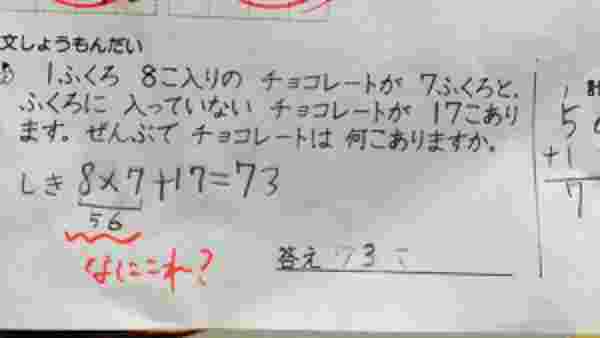 文しょうもんだい
1ふくろ 8こ入りの チョコレートが 7ふくろと、
ふくろに 入っていない チョコレートが 17こあり
ます。ぜんぶで チョコレートは 何こありますか。
しき 8×7+17=73
56
なにこれ?
答え 73こ
計
1
5
+1
7